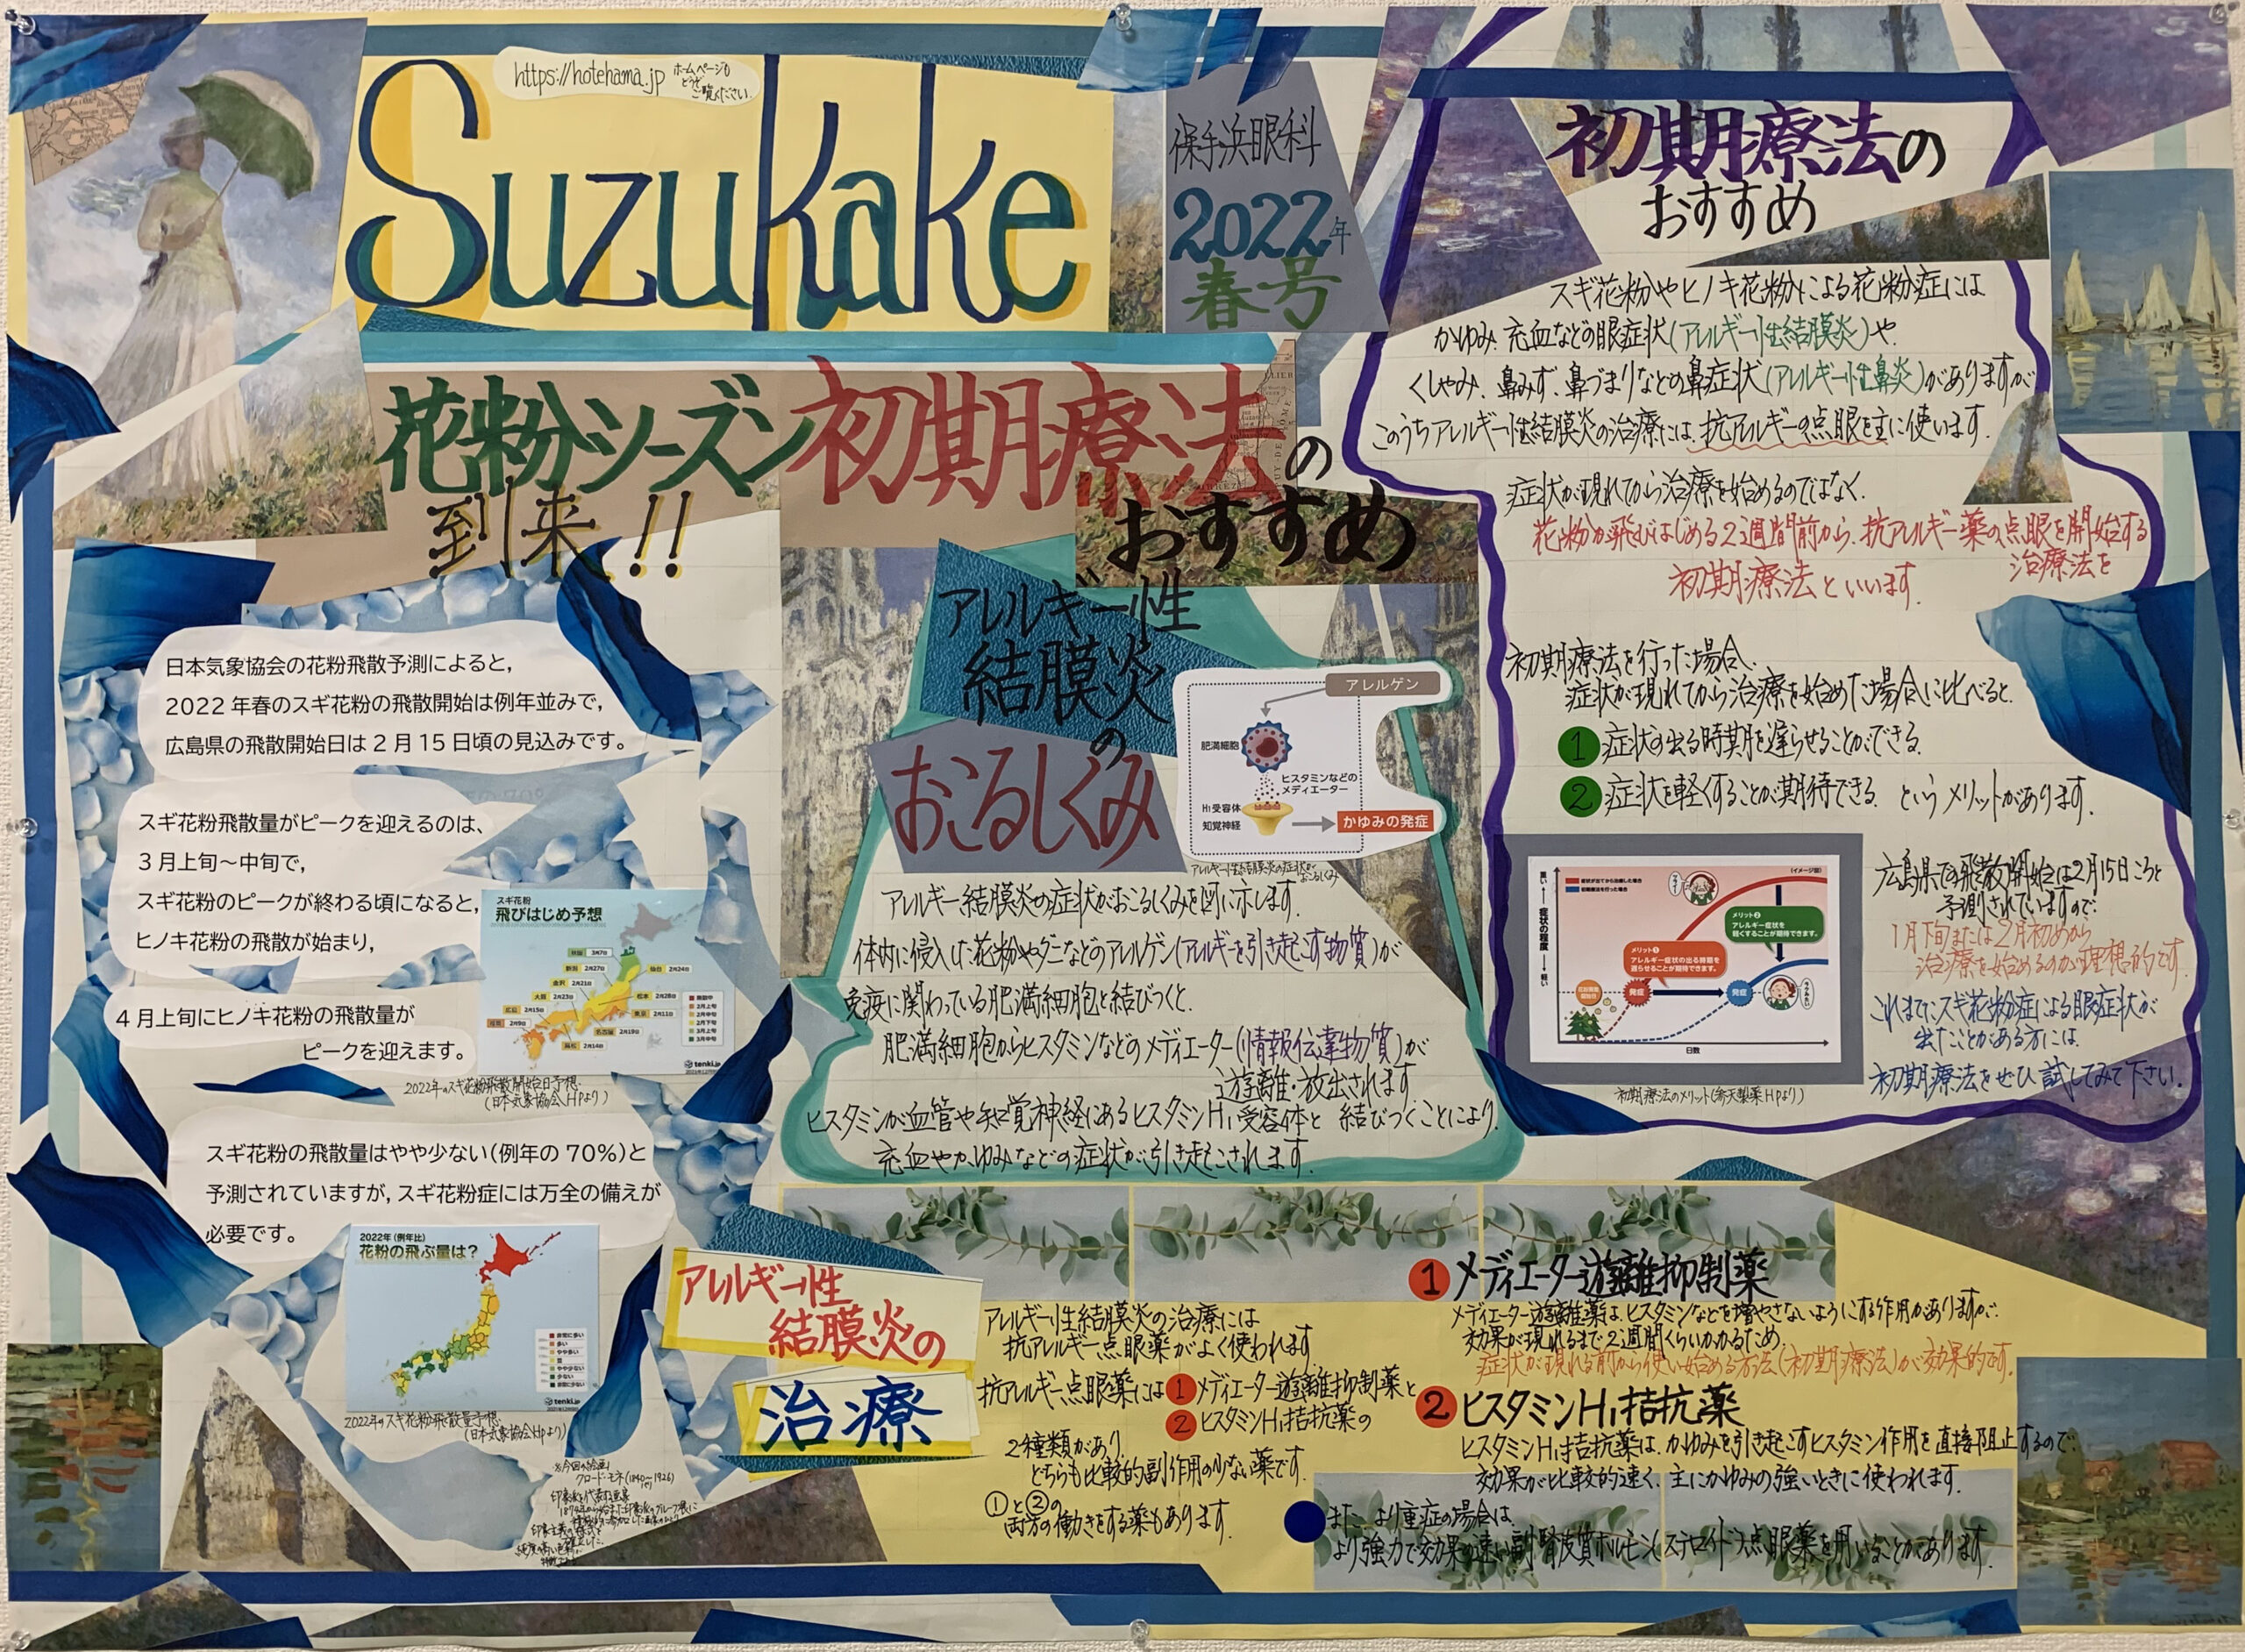 https://hotehama.jp ホームページも
どうぞ
ご覧ください.
Suzukake
保手浜眼科
2022年
春号
花粉シーズン
到来!!
初期療法の
おすすめ
日本気象協会の花粉飛散予測によると,
2022年春のスギ花粉の飛散開始は例年並みで,
広島県の飛散開始日は2月15日頃の見込みです。
スギ花粉飛散量がピークを迎えるのは,
3月上旬～中旬で,
スギ花粉のピークが終わる頃になると,
ヒノキ花粉の飛散が始まり,
4月上旬にヒノキ花粉の飛散量が
ピークを迎えます。
スギ花粉
飛びはじめ予想
秋田 3月7日
新潟 2月27日
仙台 2月24日
金沢 2月21日
大阪 2月23日
松本 2月28日
広島 2月15日
東京 2月11日
福岡 2月9日
名古屋 2月19日
高知 2月14日
tenki.jp
2022年のスギ花粉飛散開始日予想
(日本気象協会HPより)
スギ花粉の飛散量はやや少ない(例年の70%)と
予測されていますが,スギ花粉症には万全の備えが
必要です。
2022年(例年比)
花粉の飛ぶ量は?
非常に多い
多い
やや多い
並
やや少ない
少ない
非常に少ない
tenki.jp
2022年のスギ花粉飛散量予想
(日本気象協会HPより)
※今回の絵画
クロード・モネ(1840～1926)
印象派を代表する画家
アレルギー性
結膜炎の
おこるしくみ
アレルゲン
肥満細胞
ヒスタミンなどの
メディエーター
H1受容体
知覚神経
かゆみの発症
アレルギー性結膜炎の症状が
おこるしくみ
アレルギー結膜炎の症状がおこるしくみを図に示します.
体内に侵入した花粉やダニなどのアレルゲン(アレルギーを引き起こす物質)が
免疫に関わっている肥満細胞と結びつくと.
肥満細胞からヒスタミンなどのメディエーター(情報伝達物質)が
遊離・放出されます.
ヒスタミンが血管や知覚神経にあるヒスタミンH1受容体と 結びつくことにより.
充血やかゆみなどの症状が引き起こされます.
初期療法の
おすすめ
スギ花粉やヒノキ花粉による花粉症には
かゆみ.充血などの眼症状(アレルギー性結膜炎)や.
くしゃみ.鼻みず.鼻づまりなどの鼻症状(アレルギー性鼻炎)がありますが
このうちアレルギー性結膜炎の治療には.抗アレルギーの点眼を主に使います.
症状が現れてから治療を始めるのではなく.
花粉が飛びはじめる2週間前から.抗アレルギー薬の点眼を開始する
治療法を
初期療法といいます.
初期療法を行った場合.
症状が現れてから治療を始めた場合に比べると.
1 症状の出る時期を遅らせることができる.
2 症状を軽くすることが期待できる. というメリットがあります.
症状が出てから治療した場合
初期療法を行った場合
(イメージ図)
悪い
症状の程度
軽い
メリット2
アレルギー症状を
軽くすることが期待できます。
メリット1
アレルギー症状の出る時期を
遅らせることが期待できます。
発症
発症
日数
初期療法のメリット(参天製薬HPより)
広島県での飛散開始は2月15日ごろと
予測されていますので.
1月下旬または2月初めから
治療を始めるのが理想的です.
これまでにスギ花粉症による眼症状が
出たことがある方には.
初期療法をぜひ試してみて下さい.
アレルギー性
結膜炎の
治療
アレルギー性結膜炎の治療には
抗アレルギー点眼薬がよく使われます
抗アレルギー点眼薬には1メディエーター遊離抑制薬と
2ヒスタミンH1拮抗薬の
2種類があり.
どちらも比較的副作用の少ない薬です.
①と②の
両方の働きをする薬もあります.
1 メディエーター遊離抑制薬
メディエーター遊離薬は.ヒスタミンなどを増やさないようにする作用がありますが.
効果が現れるまで2週間くらいかかるため.
症状が現れる前から使い始める方法(初期療法)が効果的です.
2 ヒスタミンH1拮抗薬
ヒスタミンH1拮抗薬は.かゆみを引き起こすヒスタミン作用を直接阻止するので.
効果が比較的速く.主にかゆみの強いときに使われます.
また.より重症の場合は.
より強力で効果の速い副腎皮質ホルモン(ステロイド)点眼薬を用いることがあります.